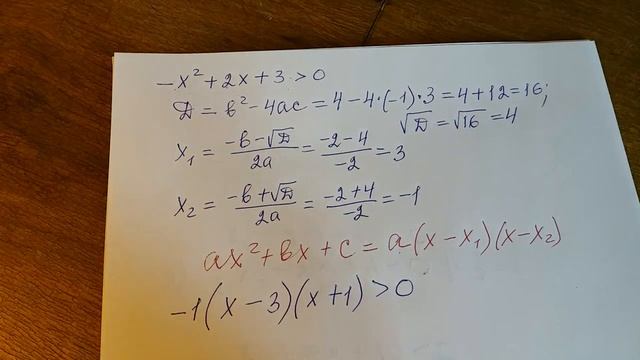 -x² + 2x + 3 > 0
D = b² - 4ac = 4 - 4·(-1)·3 = 4 + 12 = 16;
√D = √16 = 4
x₁ = (-b - √D)/(2a) = (-2 - 4)/(-2) = 3
x₂ = (-b + √D)/(2a) = (-2 + 4)/(-2) = -1
ax² + bx + c = a(x - x₁)(x - x₂)
-1(x - 3)(x + 1) > 0